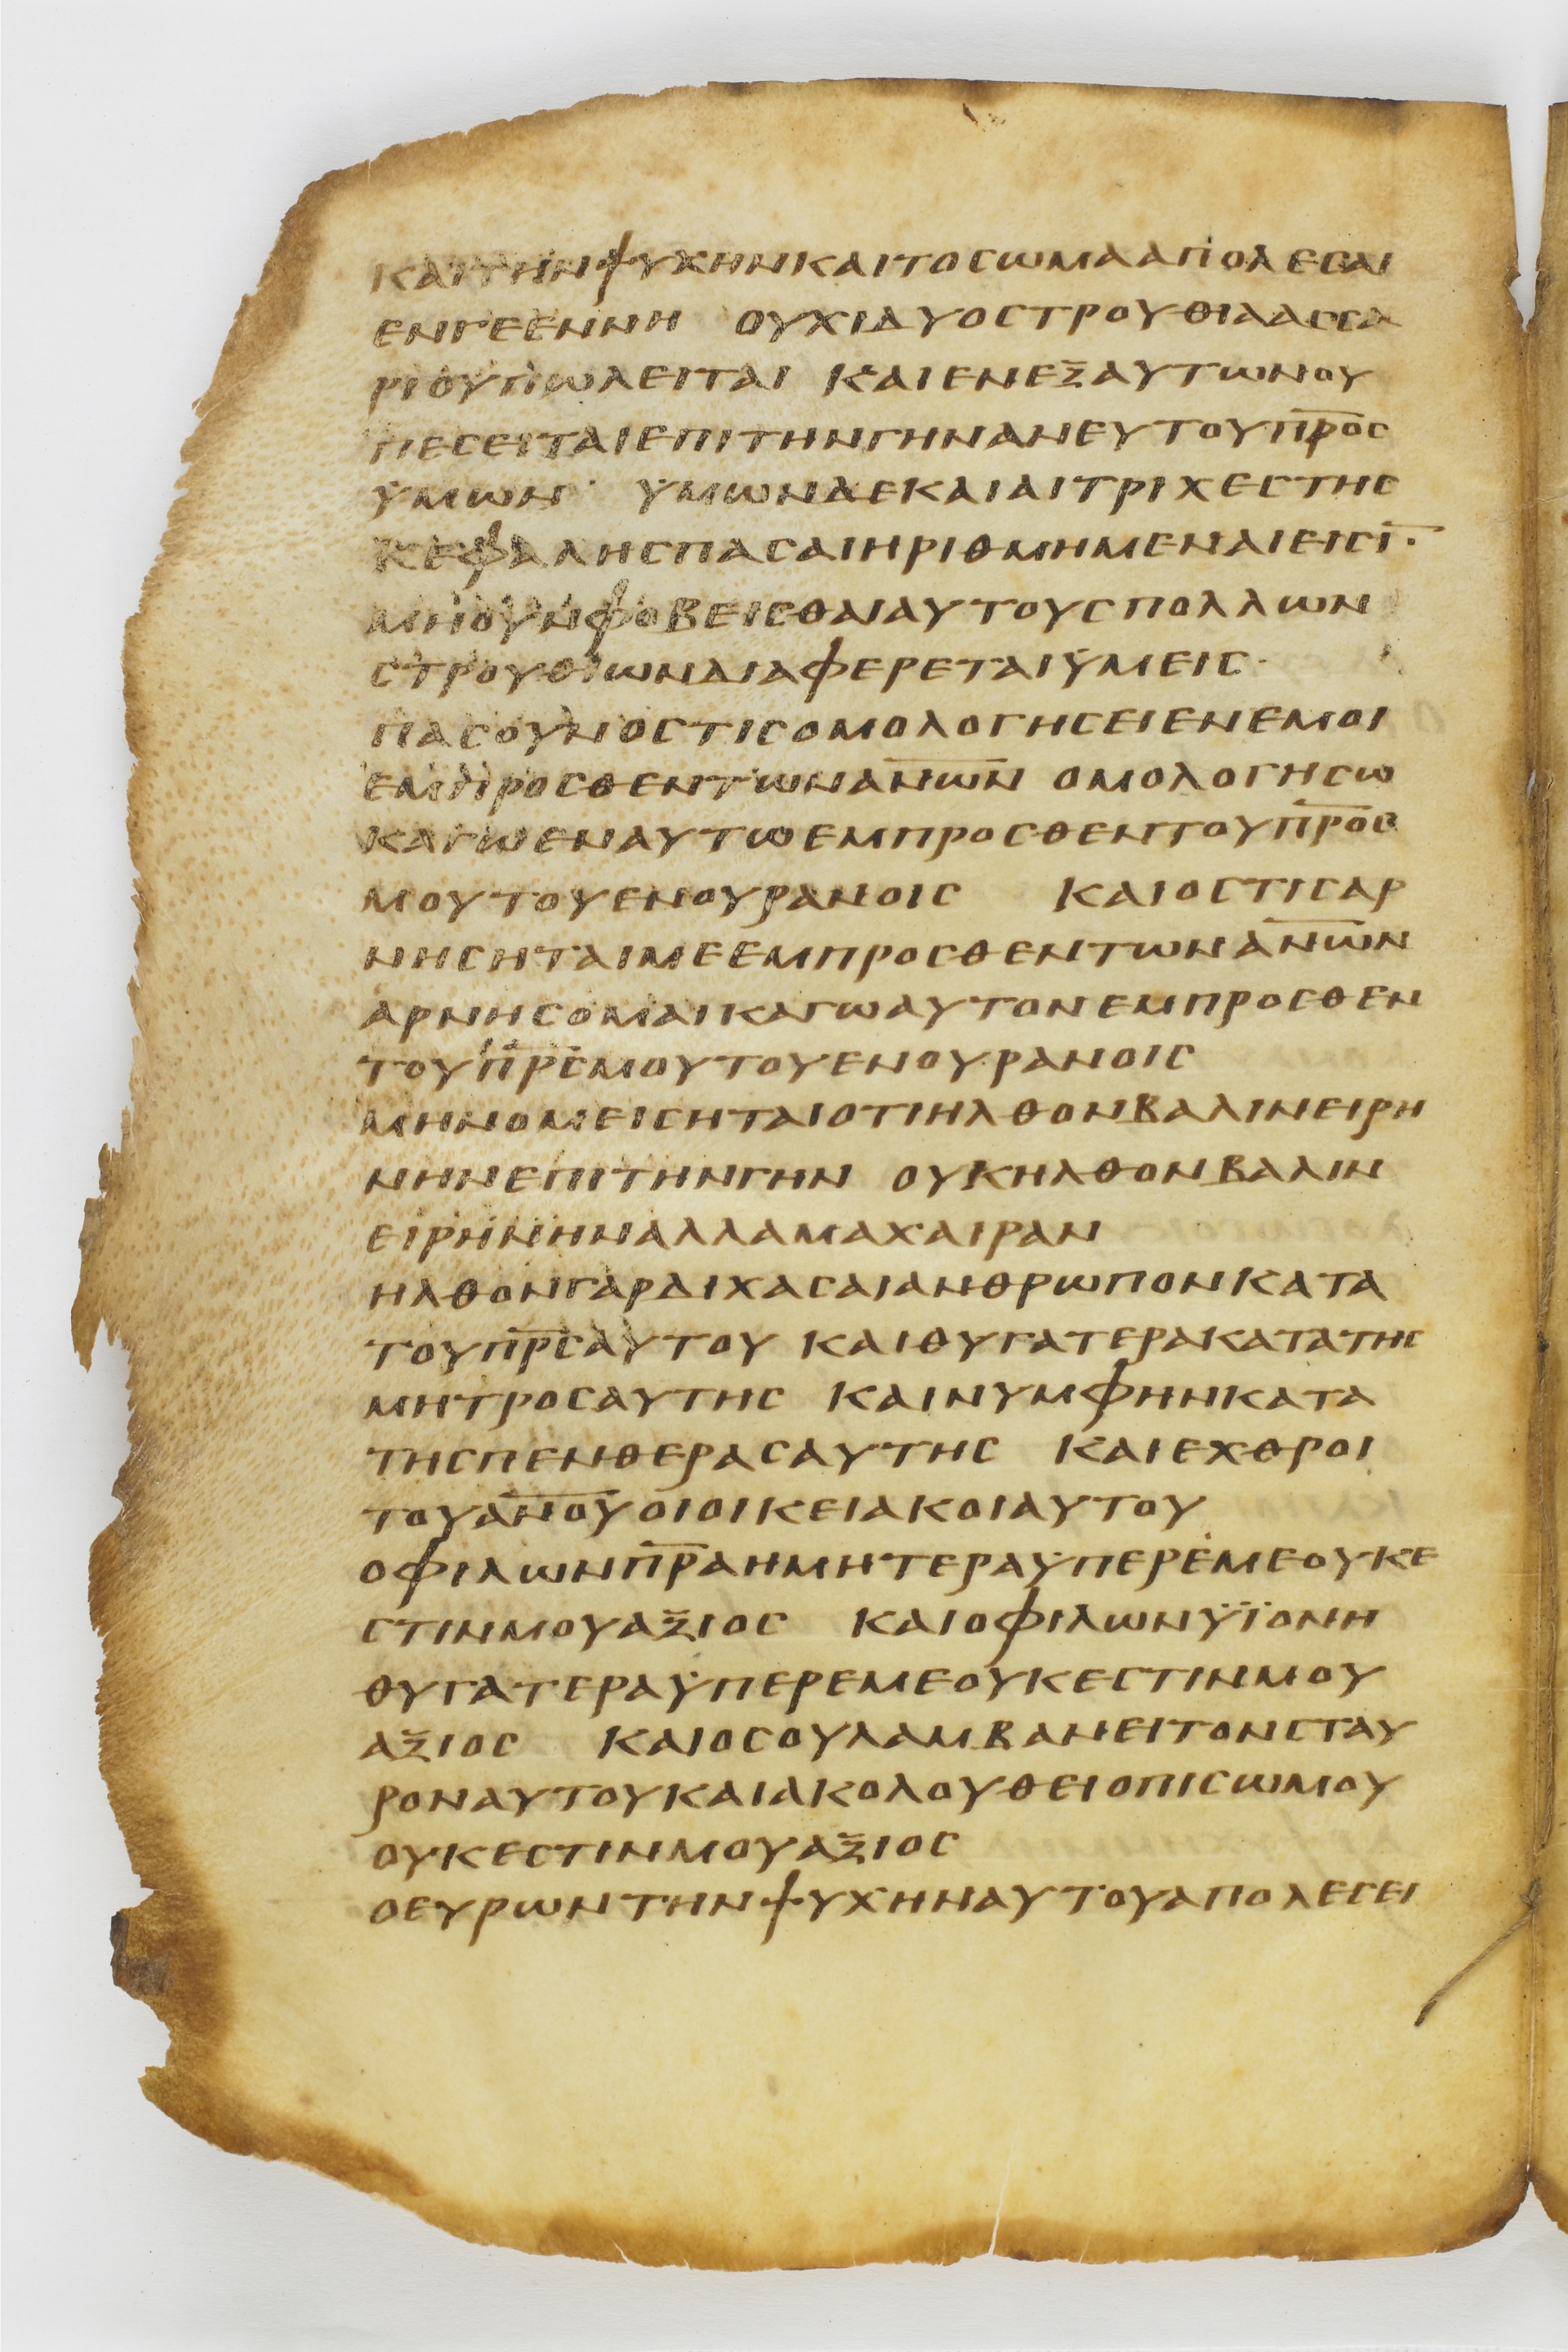 ΚΑΙΤΗΝΨΥΧΗΝΚΑΙΤΟϹΩΜΑΑΠΟΛΕϹΑΙ
ΕΝΓΕΕΝΝΗ ΟΥΧΙΔΥΟϹΤΡΟΥΘΙΑΑϹϹΑ
ΡΙΟΥΠΩΛΕΙΤΑΙ ΚΑΙΕΝΕΞΑΥΤΩΝΟΥ
ΠΕϹΕΙΤΑΙΕΠΙΤΗΝΓΗΝΑΝΕΥΤΟΥΠ̅Ρ̅Ο̅Ϲ
ΥΜΩΝ· ΥΜΩΝΔΕΚΑΙΑΙΤΡΙΧΕϹΤΗϹ
ΚΕΦΑΛΗϹΠΑϹΑΙΗΡΙΘΜΗΜΕΝΑΙΕΙϹΙ̅·
ΜΗΟΥΝΦΟΒΕΙϹΘΑΙΑΥΤΟΥϹΠΟΛΛΩΝ
ϹΤΡΟΥΘΙΩΝΔΙΑΦΕΡΕΤΑΙΫΜΕΙϹ·
ΠΑϹΟΥΝΟϹΤΙϹΟΜΟΛΟΓΗϹΕΙΕΝΕΜΟΙ
ΕΜΠΡΟϹΘΕΝΤΩΝΑ̅Ν̅Ω̅Ν̅ ΟΜΟΛΟΓΗϹΩ
ΚΑΓΩΕΝΑΥΤΩΕΜΠΡΟϹΘΕΝΤΟΥΠ̅Ρ̅Ο̅Ϲ
ΜΟΥΤΟΥΕΝΟΥΡΑΝΟΙϹ ΚΑΙΟϹΤΙϹΑΡ
ΝΗϹΗΤΑΙΜΕΕΜΠΡΟϹΘΕΝΤΩΝΑ̅Ν̅Ω̅Ν
ΑΡΝΗϹΟΜΑΙΚΑΓΩΑΥΤΟΝΕΜΠΡΟϹΘΕΝ
ΤΟΥΠ̅Ρ̅Ϲ̅ΜΟΥΤΟΥΕΝΟΥΡΑΝΟΙϹ
ΜΗΝΟΜΕΙϹΗΤΑΙΟΤΙΗΛΘΟΝΒΑΛΙΝΕΙΡΗ
ΝΗΝΕΠΙΤΗΝΓΗΝ ΟΥΚΗΛΘΟΝΒΑΛΙΝ
ΕΙΡΗΝΗΝΑΛΛΑΜΑΧΑΙΡΑΝ
ΗΛΘΟΝΓΑΡΔΙΧΑϹΑΙΑΝΘΡΩΠΟΝΚΑΤΑ
ΤΟΥΠ̅Ρ̅Ϲ̅ΑΥΤΟΥ ΚΑΙΘΥΓΑΤΕΡΑΚΑΤΑΤΗϹ
ΜΗΤΡΟϹΑΥΤΗϹ ΚΑΙΝΥΜΦΗΝΚΑΤΑ
ΤΗϹΠΕΝΘΕΡΑϹΑΥΤΗϹ ΚΑΙΕΧΘΡΟΙ
ΤΟΥΑ̅Ν̅Ο̅Υ̅ΟΙΟΙΚΕΙΑΚΟΙΑΥΤΟΥ
ΟΦΙΛΩΝΠ̅Ρ̅ΑΗΜΗΤΕΡΑΫΠΕΡΕΜΕΟΥΚΕ
ϹΤΙΝΜΟΥΑΞΙΟϹ ΚΑΙΟΦΙΛΩΝΫΪΟΝΗ
ΘΥΓΑΤΕΡΑΫΠΕΡΕΜΕΟΥΚΕϹΤΙΝΜΟΥ
ΑΞΙΟϹ ΚΑΙΟϹΟΥΛΑΜΒΑΝΕΙΤΟΝϹΤΑΥ
ΡΟΝΑΥΤΟΥΚΑΙΑΚΟΛΟΥΘΕΙΟΠΙϹΩΜΟΥ
ΟΥΚΕϹΤΙΝΜΟΥΑΞΙΟϹ
ΟΕΥΡΩΝΤΗΝΨΥΧΗΝΑΥΤΟΥΑΠΟΛΕϹΕΙ